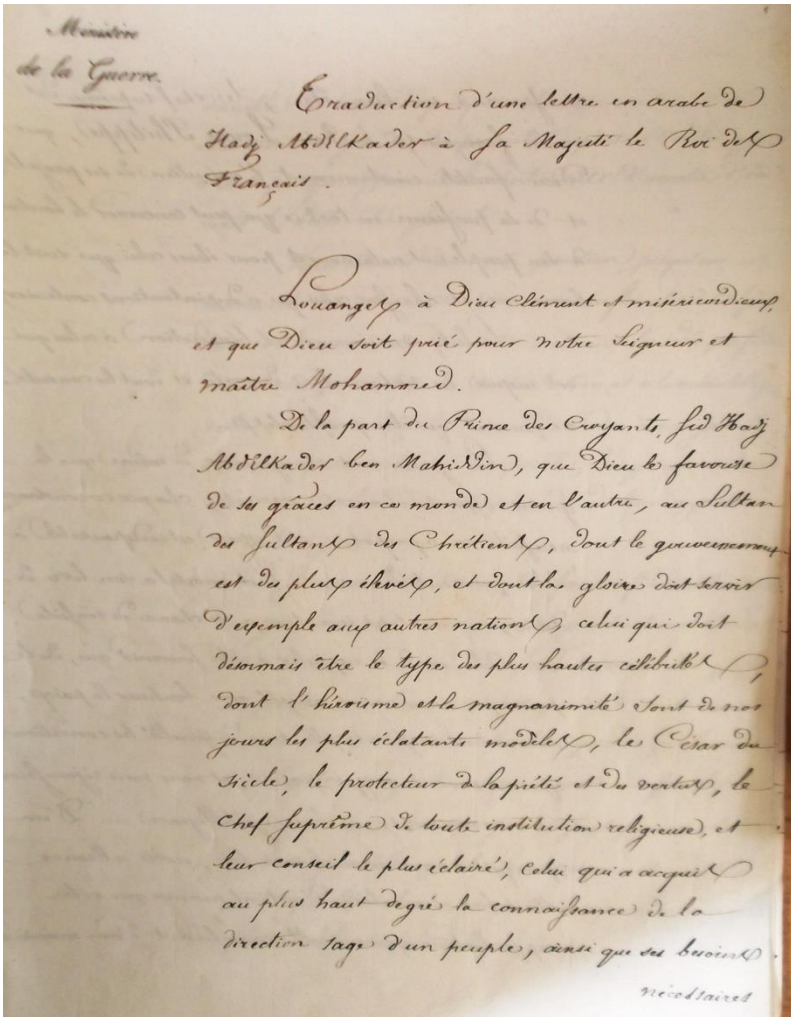 Ministère
de la Guerre.
Traduction d'une lettre en arabe de
Hadj Abdelkader à Sa Majesté le Roi des
Français.
Louanges à Dieu Clément et miséricordieux,
et que Dieu soit prié pour notre Seigneur et
maître Mohammed.
De la part du Prince des Croyants, Sid Hadj
Abdelkader ben Mahiddin, que Dieu le favorise
de ses grâces en ce monde et en l'autre, au Sultan
des Sultans des Chrétiens, dont le gouvernement
est des plus élevés, et dont la gloire doit servir
d'exemple aux autres nations, celui qui doit
désormais être le type des plus hautes célébrités,
dont l'héroïsme et la magnanimité sont de nos
jours les plus éclatants modèles, le César du
siècle, le protecteur de la piété et des vertus, le
chef suprême de toute institution religieuse, et
leur conseil le plus éclairé, celui qui a acquis
au plus haut degré la connaissance de la
direction sage d'un peuple, ainsi que ses besoins
nécessaires